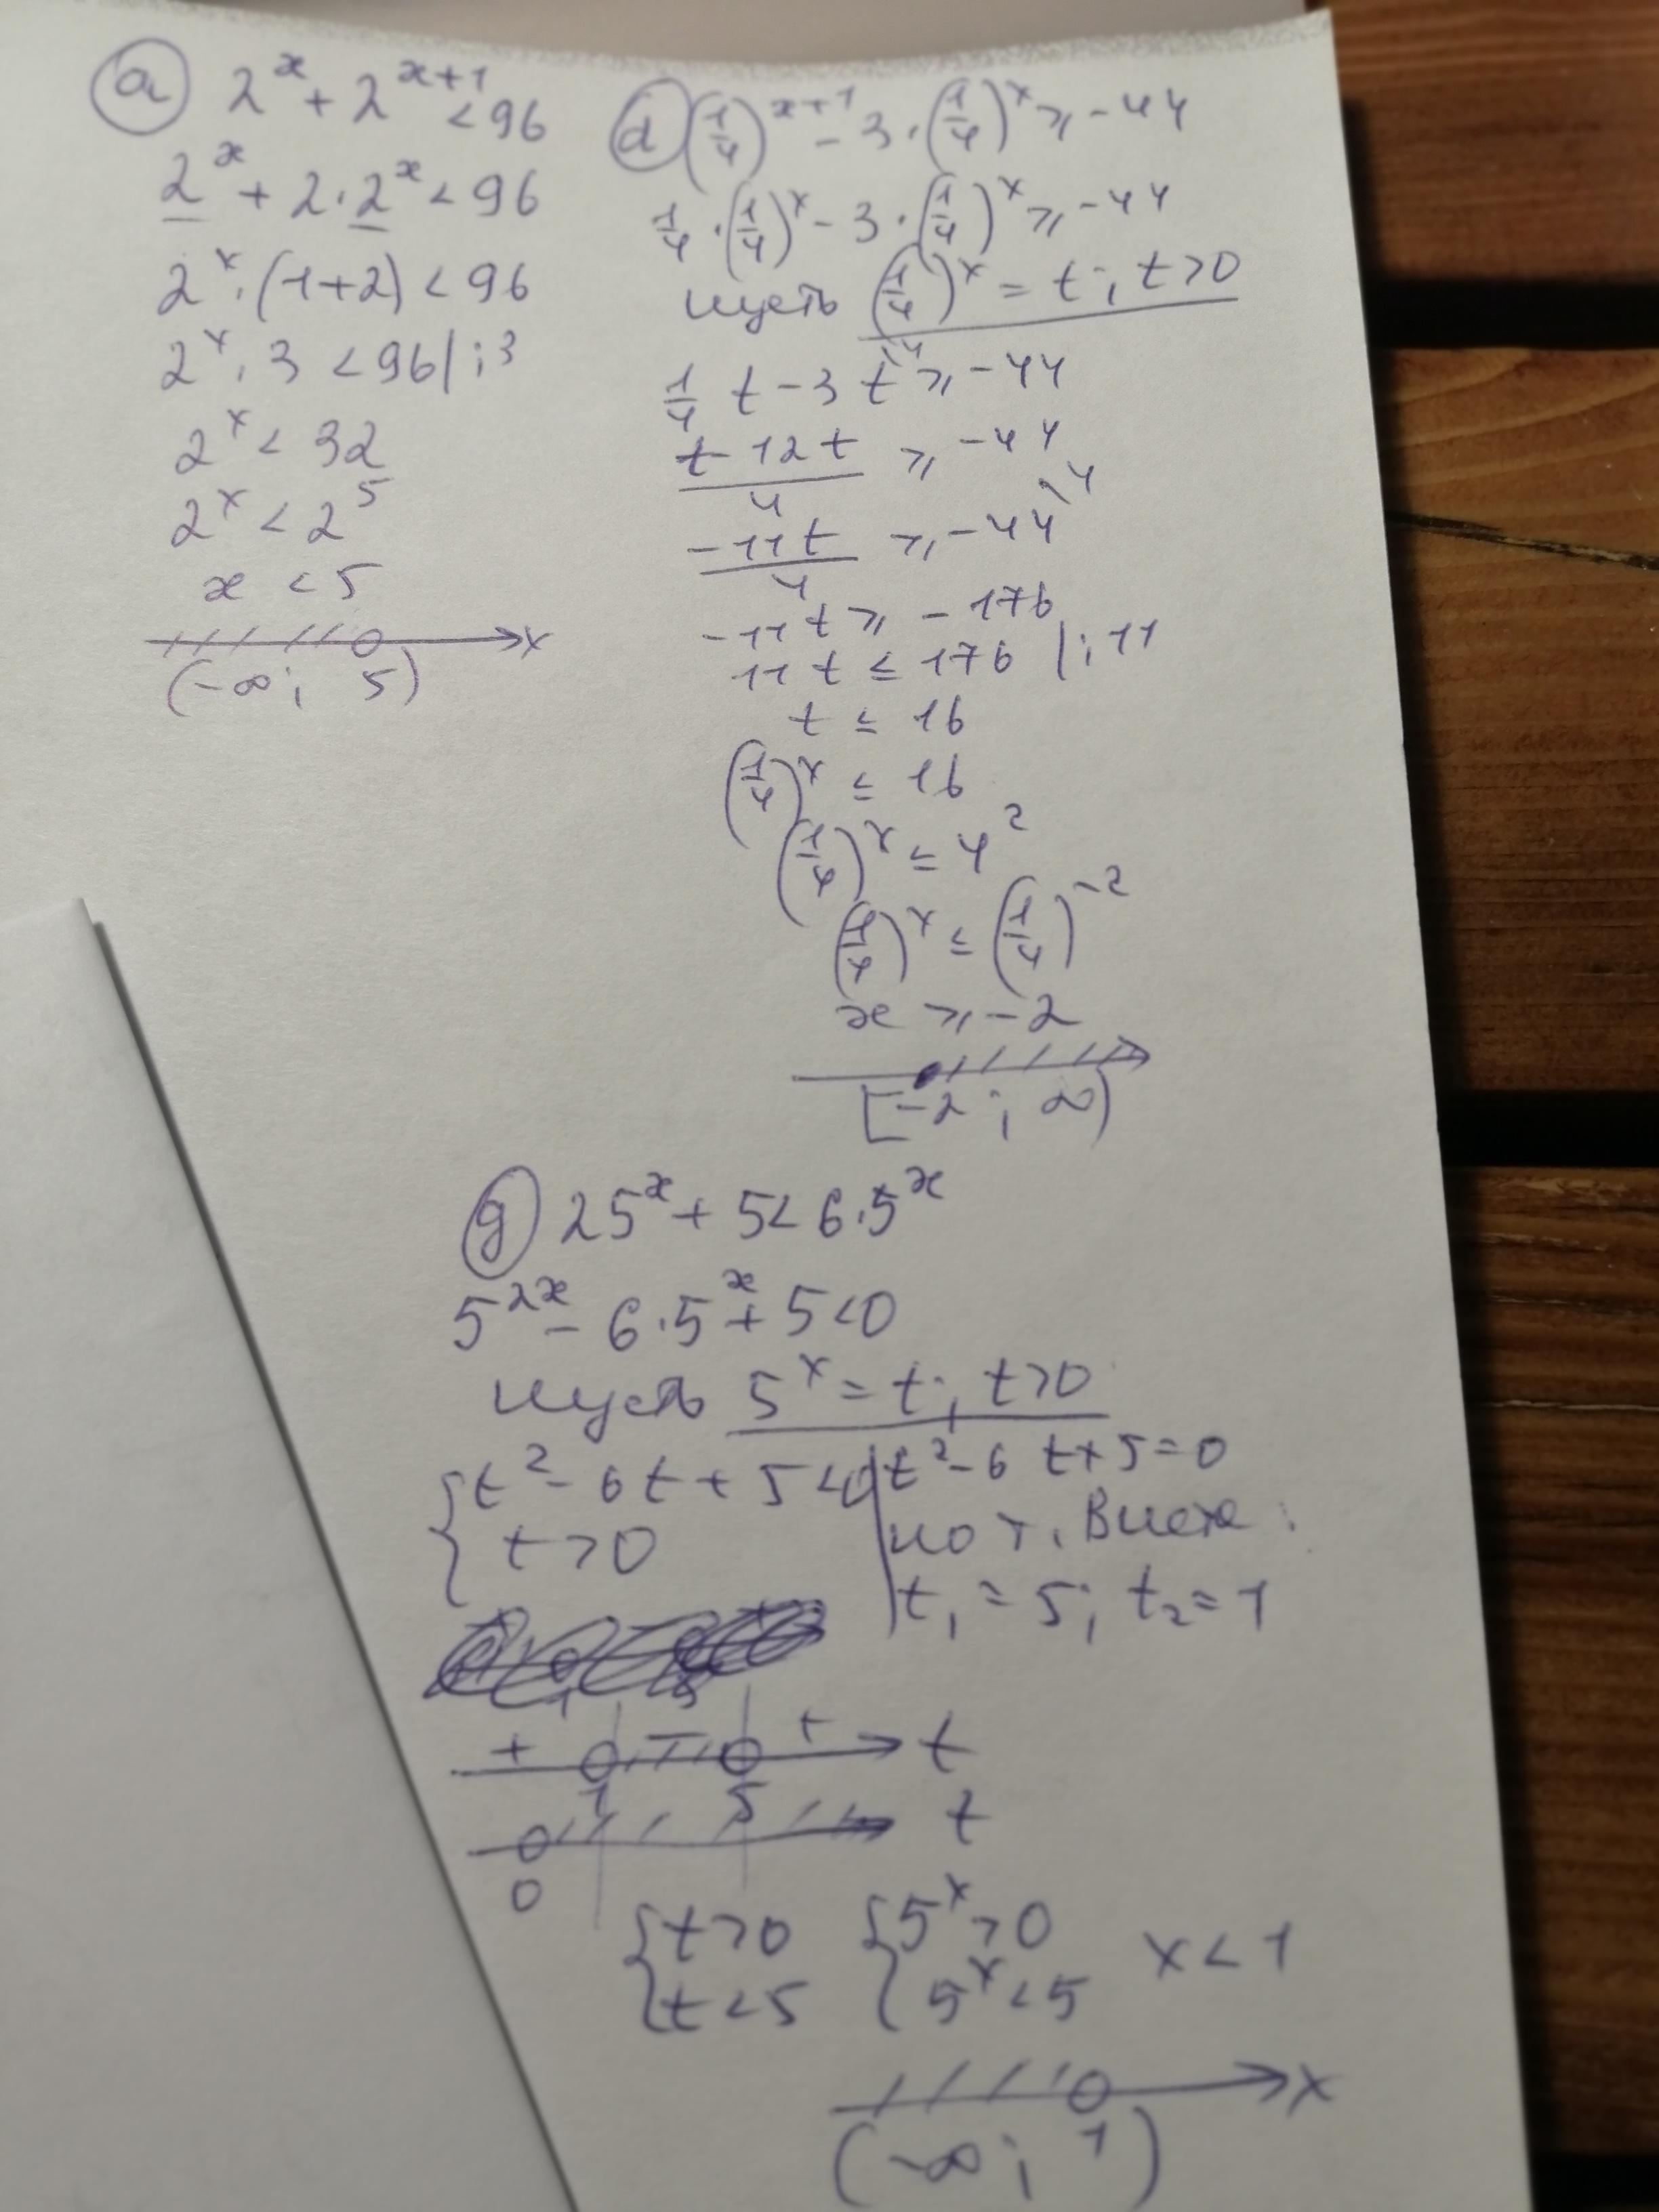 а) 2^x + 2^(x+1) < 96
2^x + 2·2^x < 96
2^x·(1+2) < 96
2^x·3 < 96 | :3
2^x < 32
2^x < 2^5
x < 5
x
(-∞; 5)
d) (1/4)^(x+1) - 3·(1/4)^x ⩾ -44
1/4·(1/4)^x - 3·(1/4)^x ⩾ -44
пусть (1/4)^x = t; t>0
1/4 t - 3t^\4 ⩾ -44
(t-12t)/4 ⩾ -44
-11t/4 ⩾ -44^\4
-11t ⩾ -176
11t ≤ 176 | :11
t ≤ 16
(1/4)^x ≤ 16
(1/4)^x ≤ 4^2
(1/4)^x ≤ (1/4)^(-2)
x ⩾ -2
[-2; ∞)
g) 25^x + 5 < 6·5^x
5^(2x) - 6·5^x + 5 < 0
пусть 5^x = t; t>0
{ t^2 - 6t + 5 < 0
t > 0
t^2 - 6t + 5 = 0
по т. Виета:
t₁ = 5; t₂ = 1
+ - + t
1 5
t
0
{ t>0
t<5
{ 5^x > 0
5^x < 5
x < 1
x
(-∞; 1)